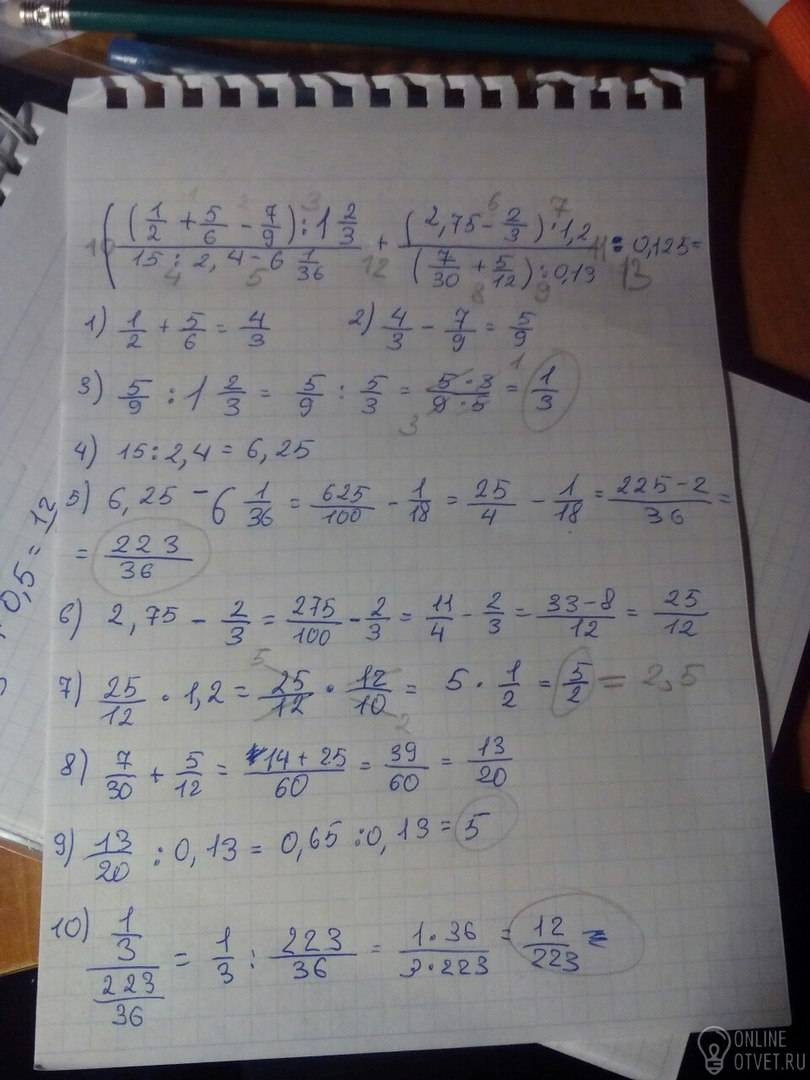 10 ( ((1/2 + 5/6 - 7/9) : 1 2/3) / (15 : 2,4 - 6 1/36) + ((2,75 - 2/3) · 1,2) / ((7/30 + 5/12) : 0,13) : 0,125 =
1 2 3 6 7 4 5 12 8 9 11 13
1) 1/2 + 5/6 = 4/3 2) 4/3 - 7/9 = 5/9
3) 5/9 : 1 2/3 = 5/9 : 5/3 = 5 · 3 / 9 · 5 = 1/3
4) 15 : 2,4 = 6,25
5) 6,25 - 6 1/36 = 625/100 - 1/18 = 25/4 - 1/18 = 225-2/36 =
= 223/36
6) 2,75 - 2/3 = 275/100 - 2/3 = 11/4 - 2/3 = 33-8/12 = 25/12
7) 25/12 · 1,2 = 25/12 · 12/10 = 5 · 1/2 = 5/2 = 2,5
8) 7/30 + 5/12 = 14+25/60 = 39/60 = 13/20
9) 13/20 : 0,13 = 0,65 : 0,13 = 5
10) 1/3 / 223/36 = 1/3 : 223/36 = 1·36/3·223 = 12/223
0,5 = 12
ONLINE
OTVET.RU